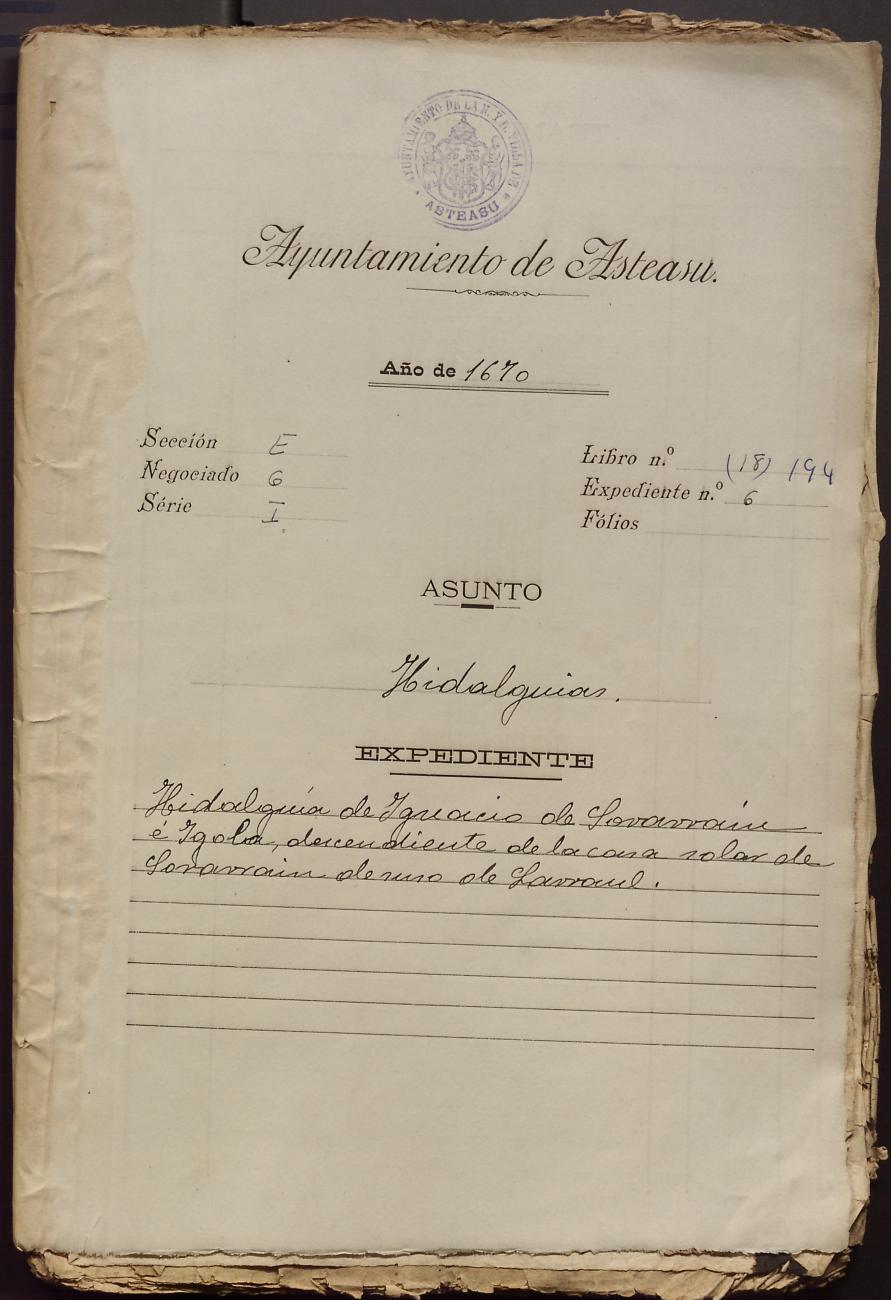 AYUNTAMIENTO DE LA N. Y L. VILLA DE
ASTEASU
Ayuntamiento de Asteasu.
Año de 1670
Sección E
Negociado 6
Série I
Libro n.º (18) 194
Expediente n.º 6
Fólios
ASUNTO
Hidalguias.
EXPEDIENTE
Hidalguía de Ignacio de Sorarrain
é Igola, descendiente de la casa solar de
Sorarrain de suso de Larraul.